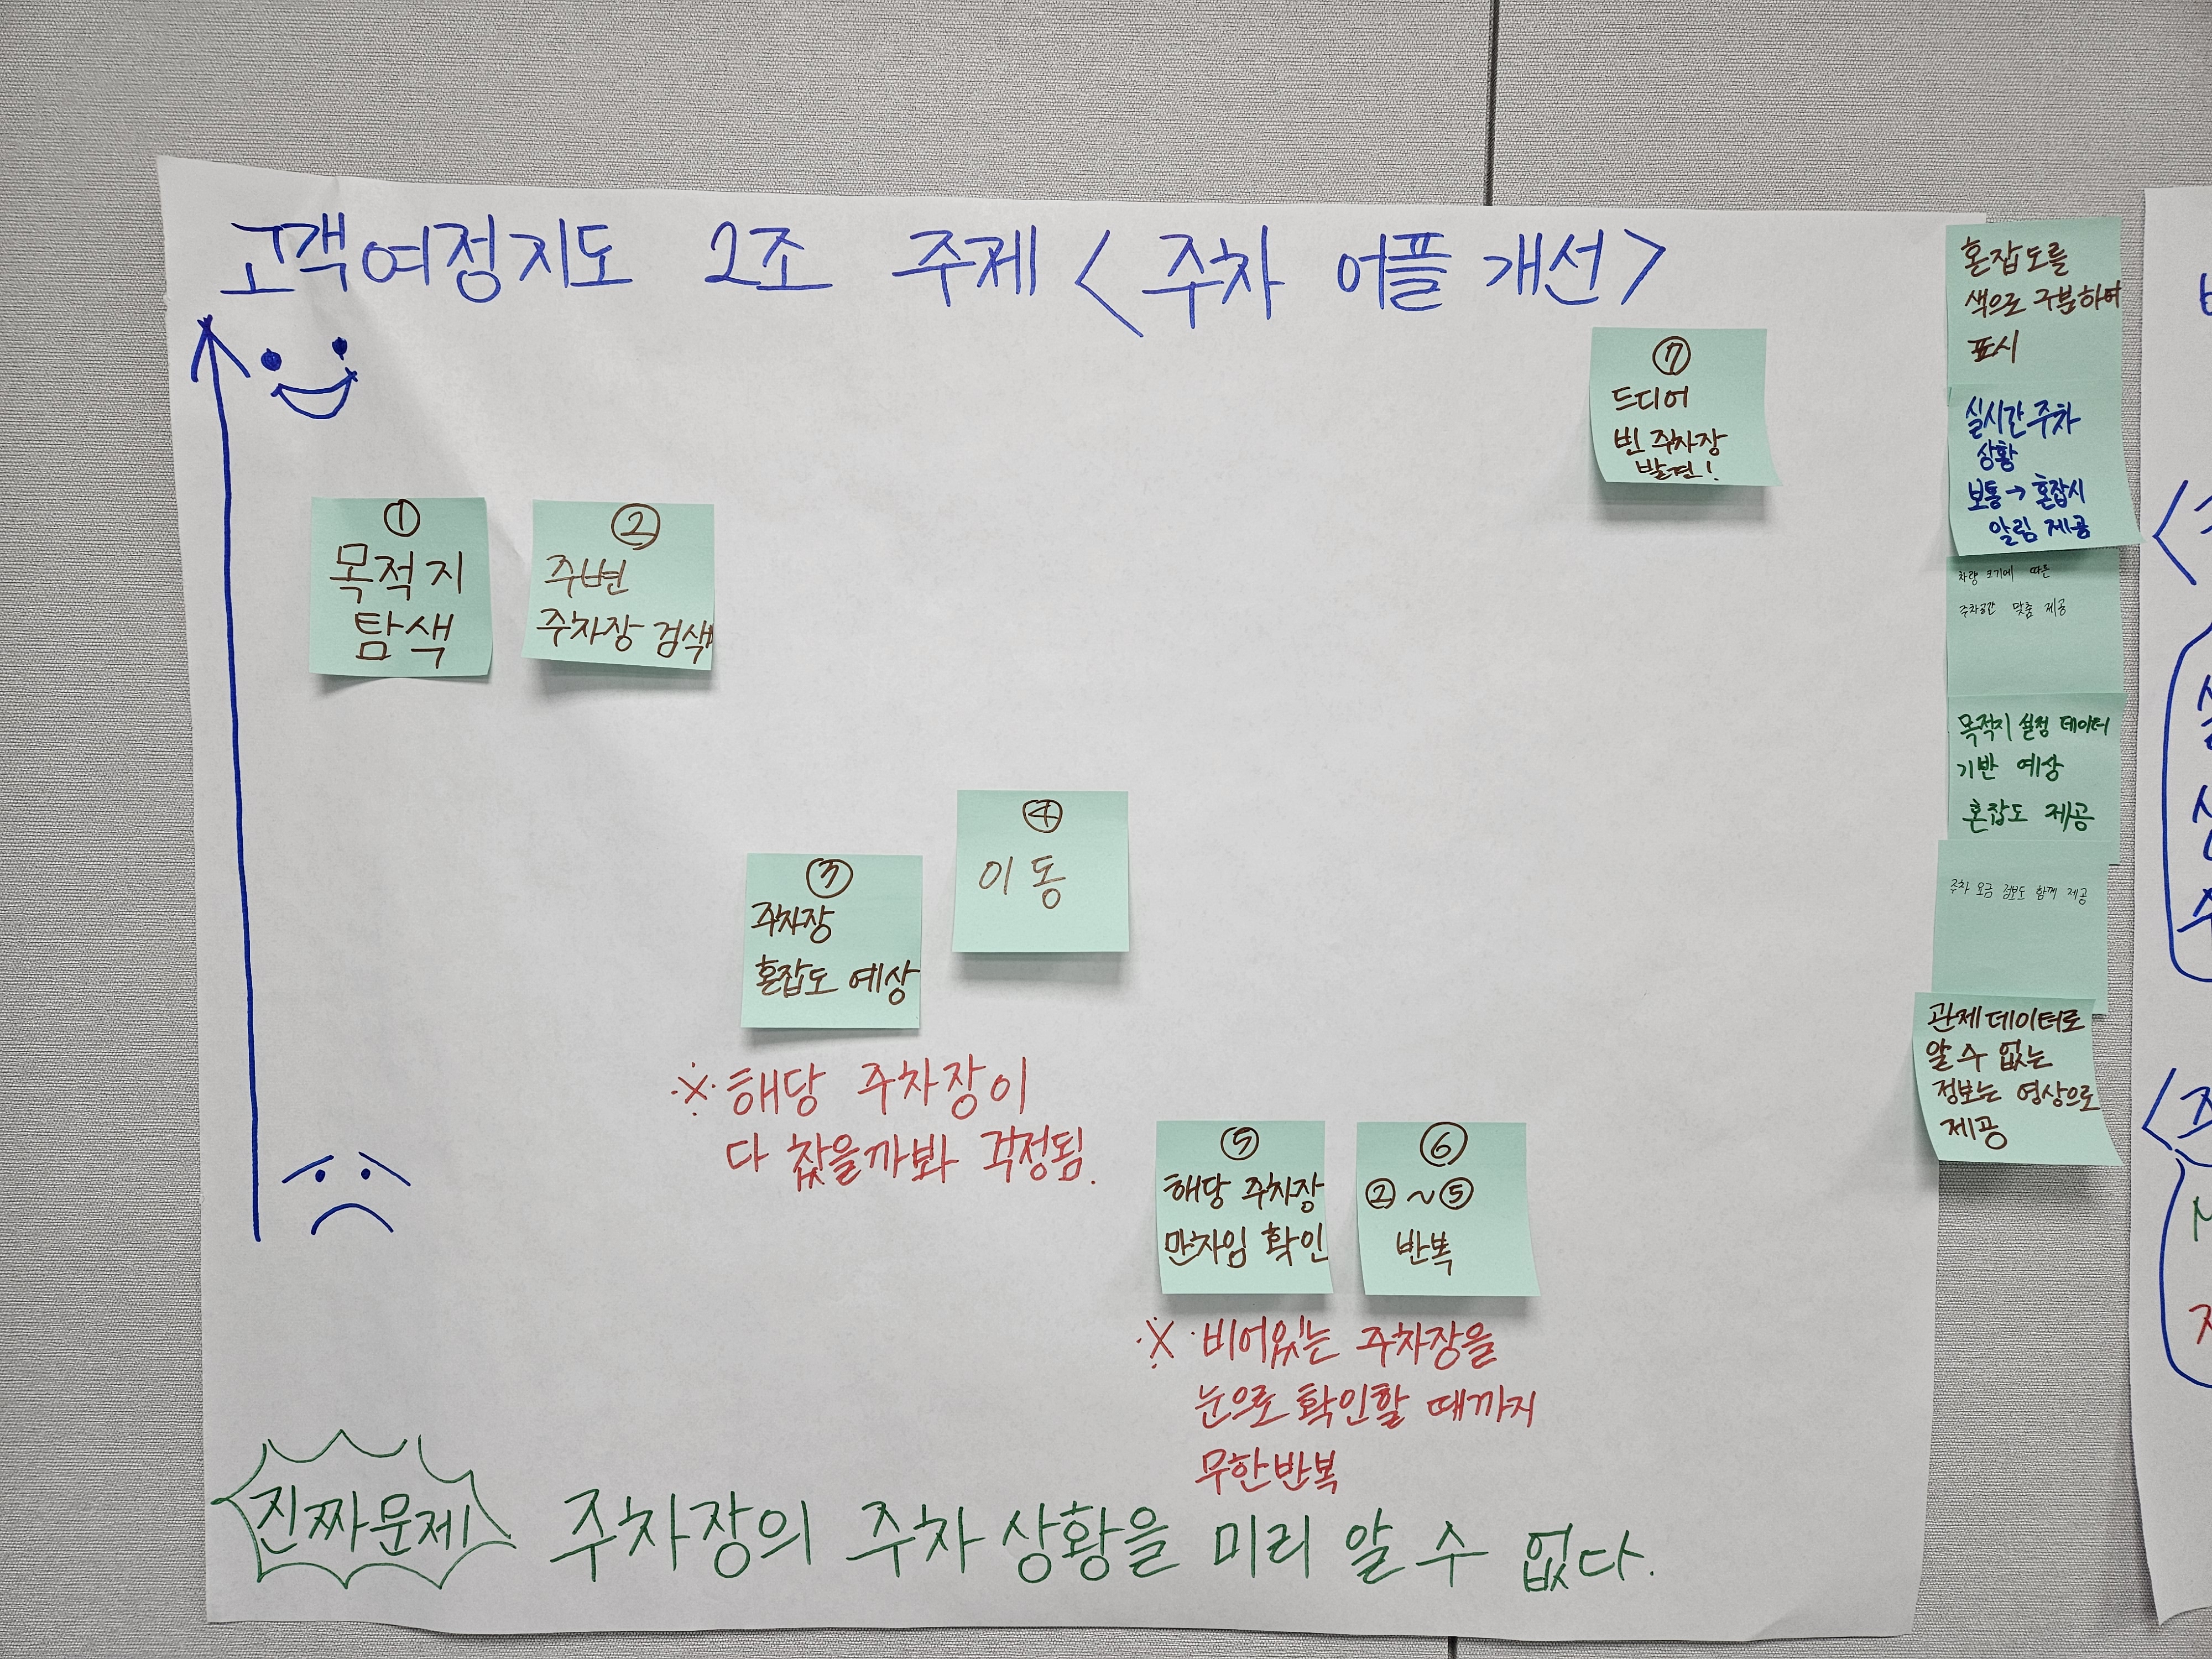 고객여정지도 2조 주제 <주차 어플 개선>
①
목적지
탐색
②
주변
주차장 검색
③
주차장
혼잡도 예상
※ 해당 주차장이
다 찼을까봐 걱정됨.
④
이동
⑤
해당 주차장
만차임 확인
⑥
②~⑤
반복
※ 비어있는 주차장을
눈으로 확인할 때까지
무한반복
⑦
드디어
빈 주차장
발견!
진짜문제
주차장의 주차 상황을 미리 알 수 없다.
혼잡도를
색으로 구분하여
표시
실시간 주차
상황
보통→혼잡시
알림 제공
차량 크기에 따른
주차공간 맞춤 제공
목적지 설정 데이터
기반 예상
혼잡도 제공
주차 요금 정보도 함께 제공
관제 데이터로
알 수 없는
정보는 영상으로
제공